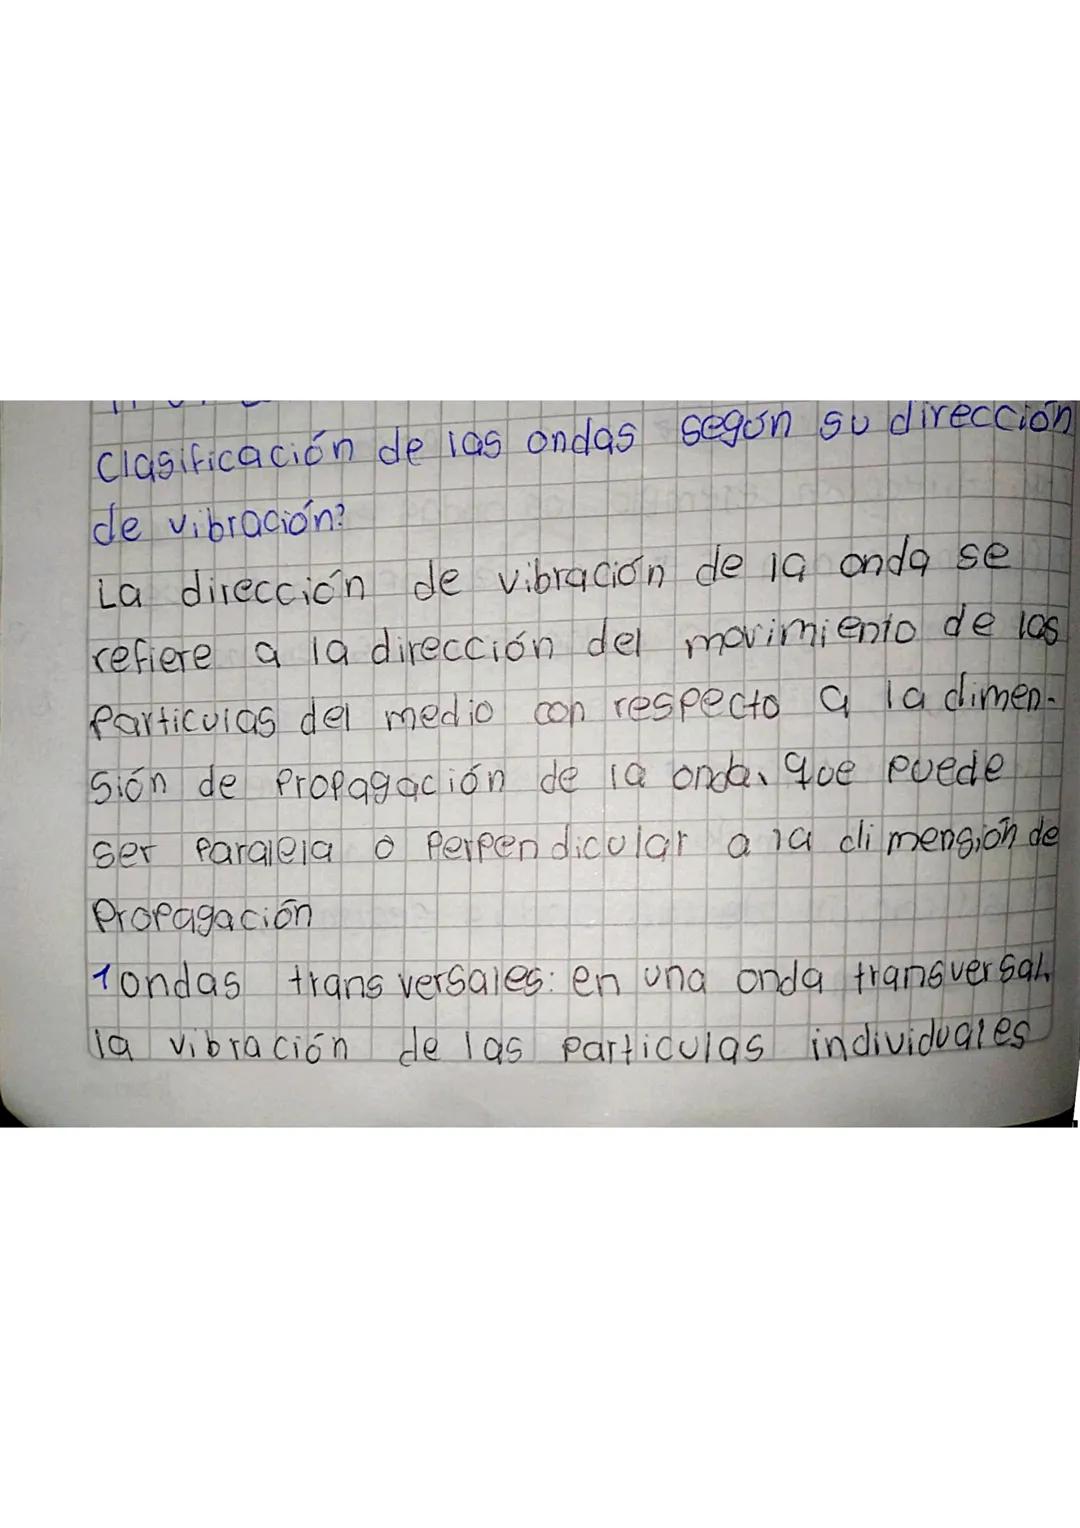 Clasificación de las ondas según su dirección
de vibración?
La dirección de vibración de la onda se
refiere a la dirección del movimiento de las
Particulas del medio con respecto a la dimen-
sión de Propagación de la onda, que puede
ser Paralela o Perpendicular a la dimensión de
Propagación
1 ondas transversales: en una onda transversal,
la vibración de las Particulas individuales